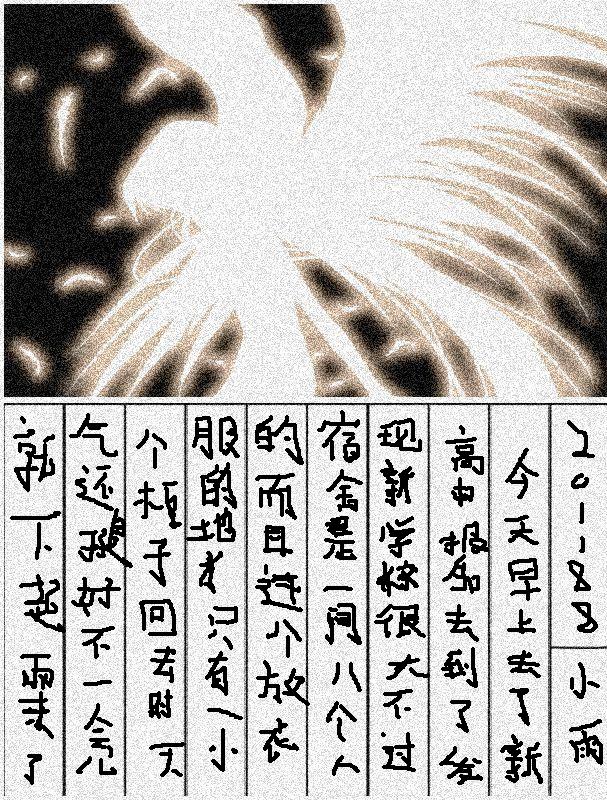 201188 小雨
今天早上去了新
高中报名去到了发
现新学校很大不过
宿舍是一间八个人
的而且连个放衣
服的地才只有一小
个柜子回去时天
气还挺好不一会儿
就下起雨来了